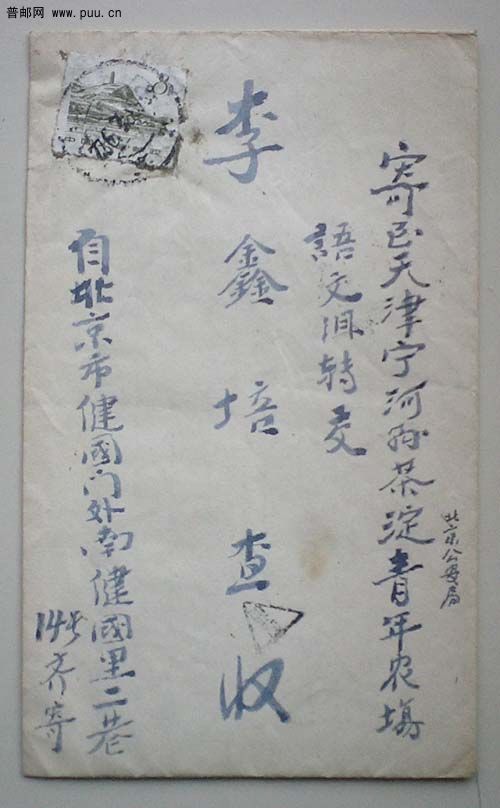 普邮网 www.puu.cn
寄至天津宁河孙茶淀青年农場
北京公安局
語文组转交
李鑫培查收
自北京市健國门外南健國里二巷
14号齐寄